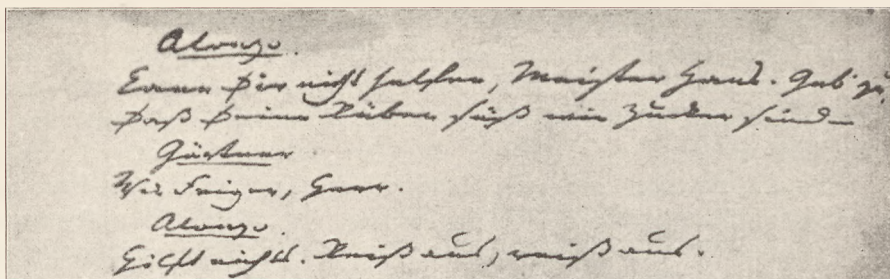 Alonzo.
Kann Dir nicht helfen, Meister Hans. Gib zu,
Daß Deine Rüben süß wie Zucker sind –
Gärtner
Wie Feigen, Herr.
Alonzo.
Hilft nichts. Reiß aus, reiß aus.